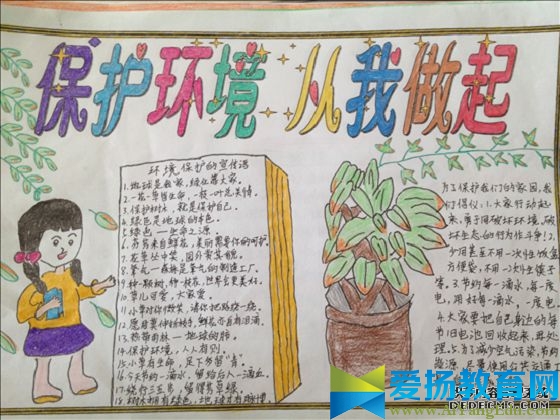 保护环境 从我做起
环境保护的宣传语
1.地球是我家,绿化靠大家。
2.一花一草皆生命,一枝一叶总关情。
3.保护树木,就是保护自己。
4.绿色是地球的本色。
5.绿色——生命之源
6.芬芳来自鲜花,美丽需要你的呵护。
7.花草丛中笑,园外赏其貌。
8.氧气——森林是氧气的制造工厂。
9.种一颗树,种一枝花,世界会更美好。
10.草儿可爱,大家爱。
11.小草对你微笑,请你把路绕一绕。
12.愿君莫伸折枝手,鲜花亦自有泪滴。
13.热带雨林——地球的肺
14.保护环境,人人有别。
15.小草有生命,足下多留"青"。
16.今天节约一滴水,留给后人一滴血。
17.绕行三五步,留得芳草绿。
18.树木拥有绿色,地球才有脉搏。
为了保护我们的家园,我
们倡议:1.大家行动起
来,勇于同破坏环境、破
坏生态的行为作斗争!2.
少用甚至不用一次性饭盒
方便袋,不用一次性筷子
等。3.节约每一滴水,每一度
电,用好每一滴水,一度电
4.大家要把自己身边的每
节旧电池回收起来,再处
理。5.为了减少空气污染,节约
能源,尽量使用公共交通
爱扬教育网